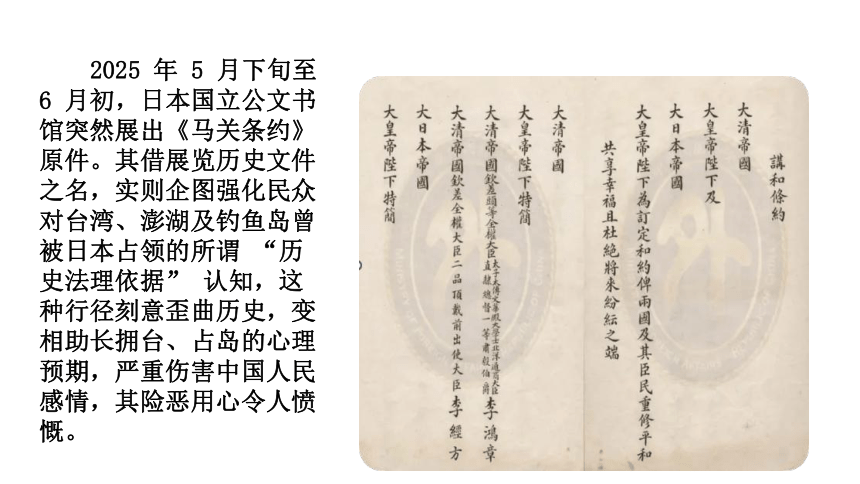 2025 年 5 月下旬至
6 月初，日本国立公文书
馆突然展出《马关条约》
原件。其借展览历史文件
之名，实则企图强化民众
对台湾、澎湖及钓鱼岛曾
被日本占领的所谓 “历
史法理依据” 认知，这
种行径刻意歪曲历史，变
相助长拥台、占岛的心理
预期，严重伤害中国人民
感情，其险恶用心令人愤
慨。
講和條約
大清帝國
大皇帝陛下及
大日本帝國
大皇帝陛下為訂定和約俾兩國及其臣民重修平和
共享幸福且杜絕將來紛紜之端
大清帝國
大皇帝陛下特簡
大清帝國欽差頭等全權大臣太子太傅文華殿大學士北洋通商大臣直隸總督一等肅毅伯爵李鴻章
大清帝國欽差全權大臣二品頂戴前出使大臣李經方
大日本帝國
大皇帝陛下特簡